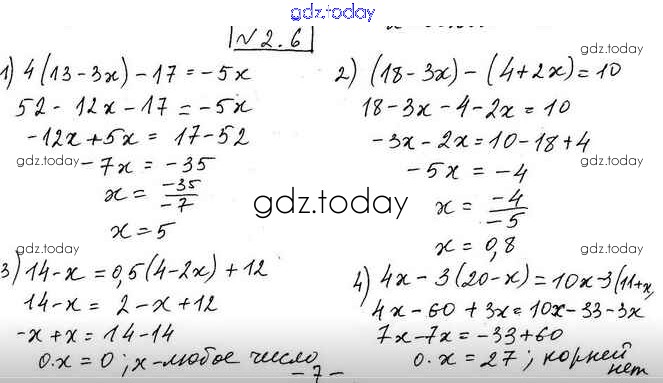 gdz.today
№ 2.6
gdz.today
1) 4(13-3x)-17=-5x
52-12x-17=-5x
-12x+5x=17-52
gdz.today
-7x=-35
x=-35/-7
x=5
2) (18-3x)-(4+2x)=10
18-3x-4-2x=10
-3x-2x=10-18+4
gdz.today
-5x=-4
x=-4/-5
x=0,8
gdz.today
gdz.today
3) 14-x=0,5(4-2x)+12
14-x=2-x+12
-x+x=14-14
0.x=0; x-любое число
gdz.today
4) 4x-3(20-x)=10x-3(11+x)
4x-60+3x=10x-33-3x
7x-7x=-33+60
0.x=27; корней
нет
-7-